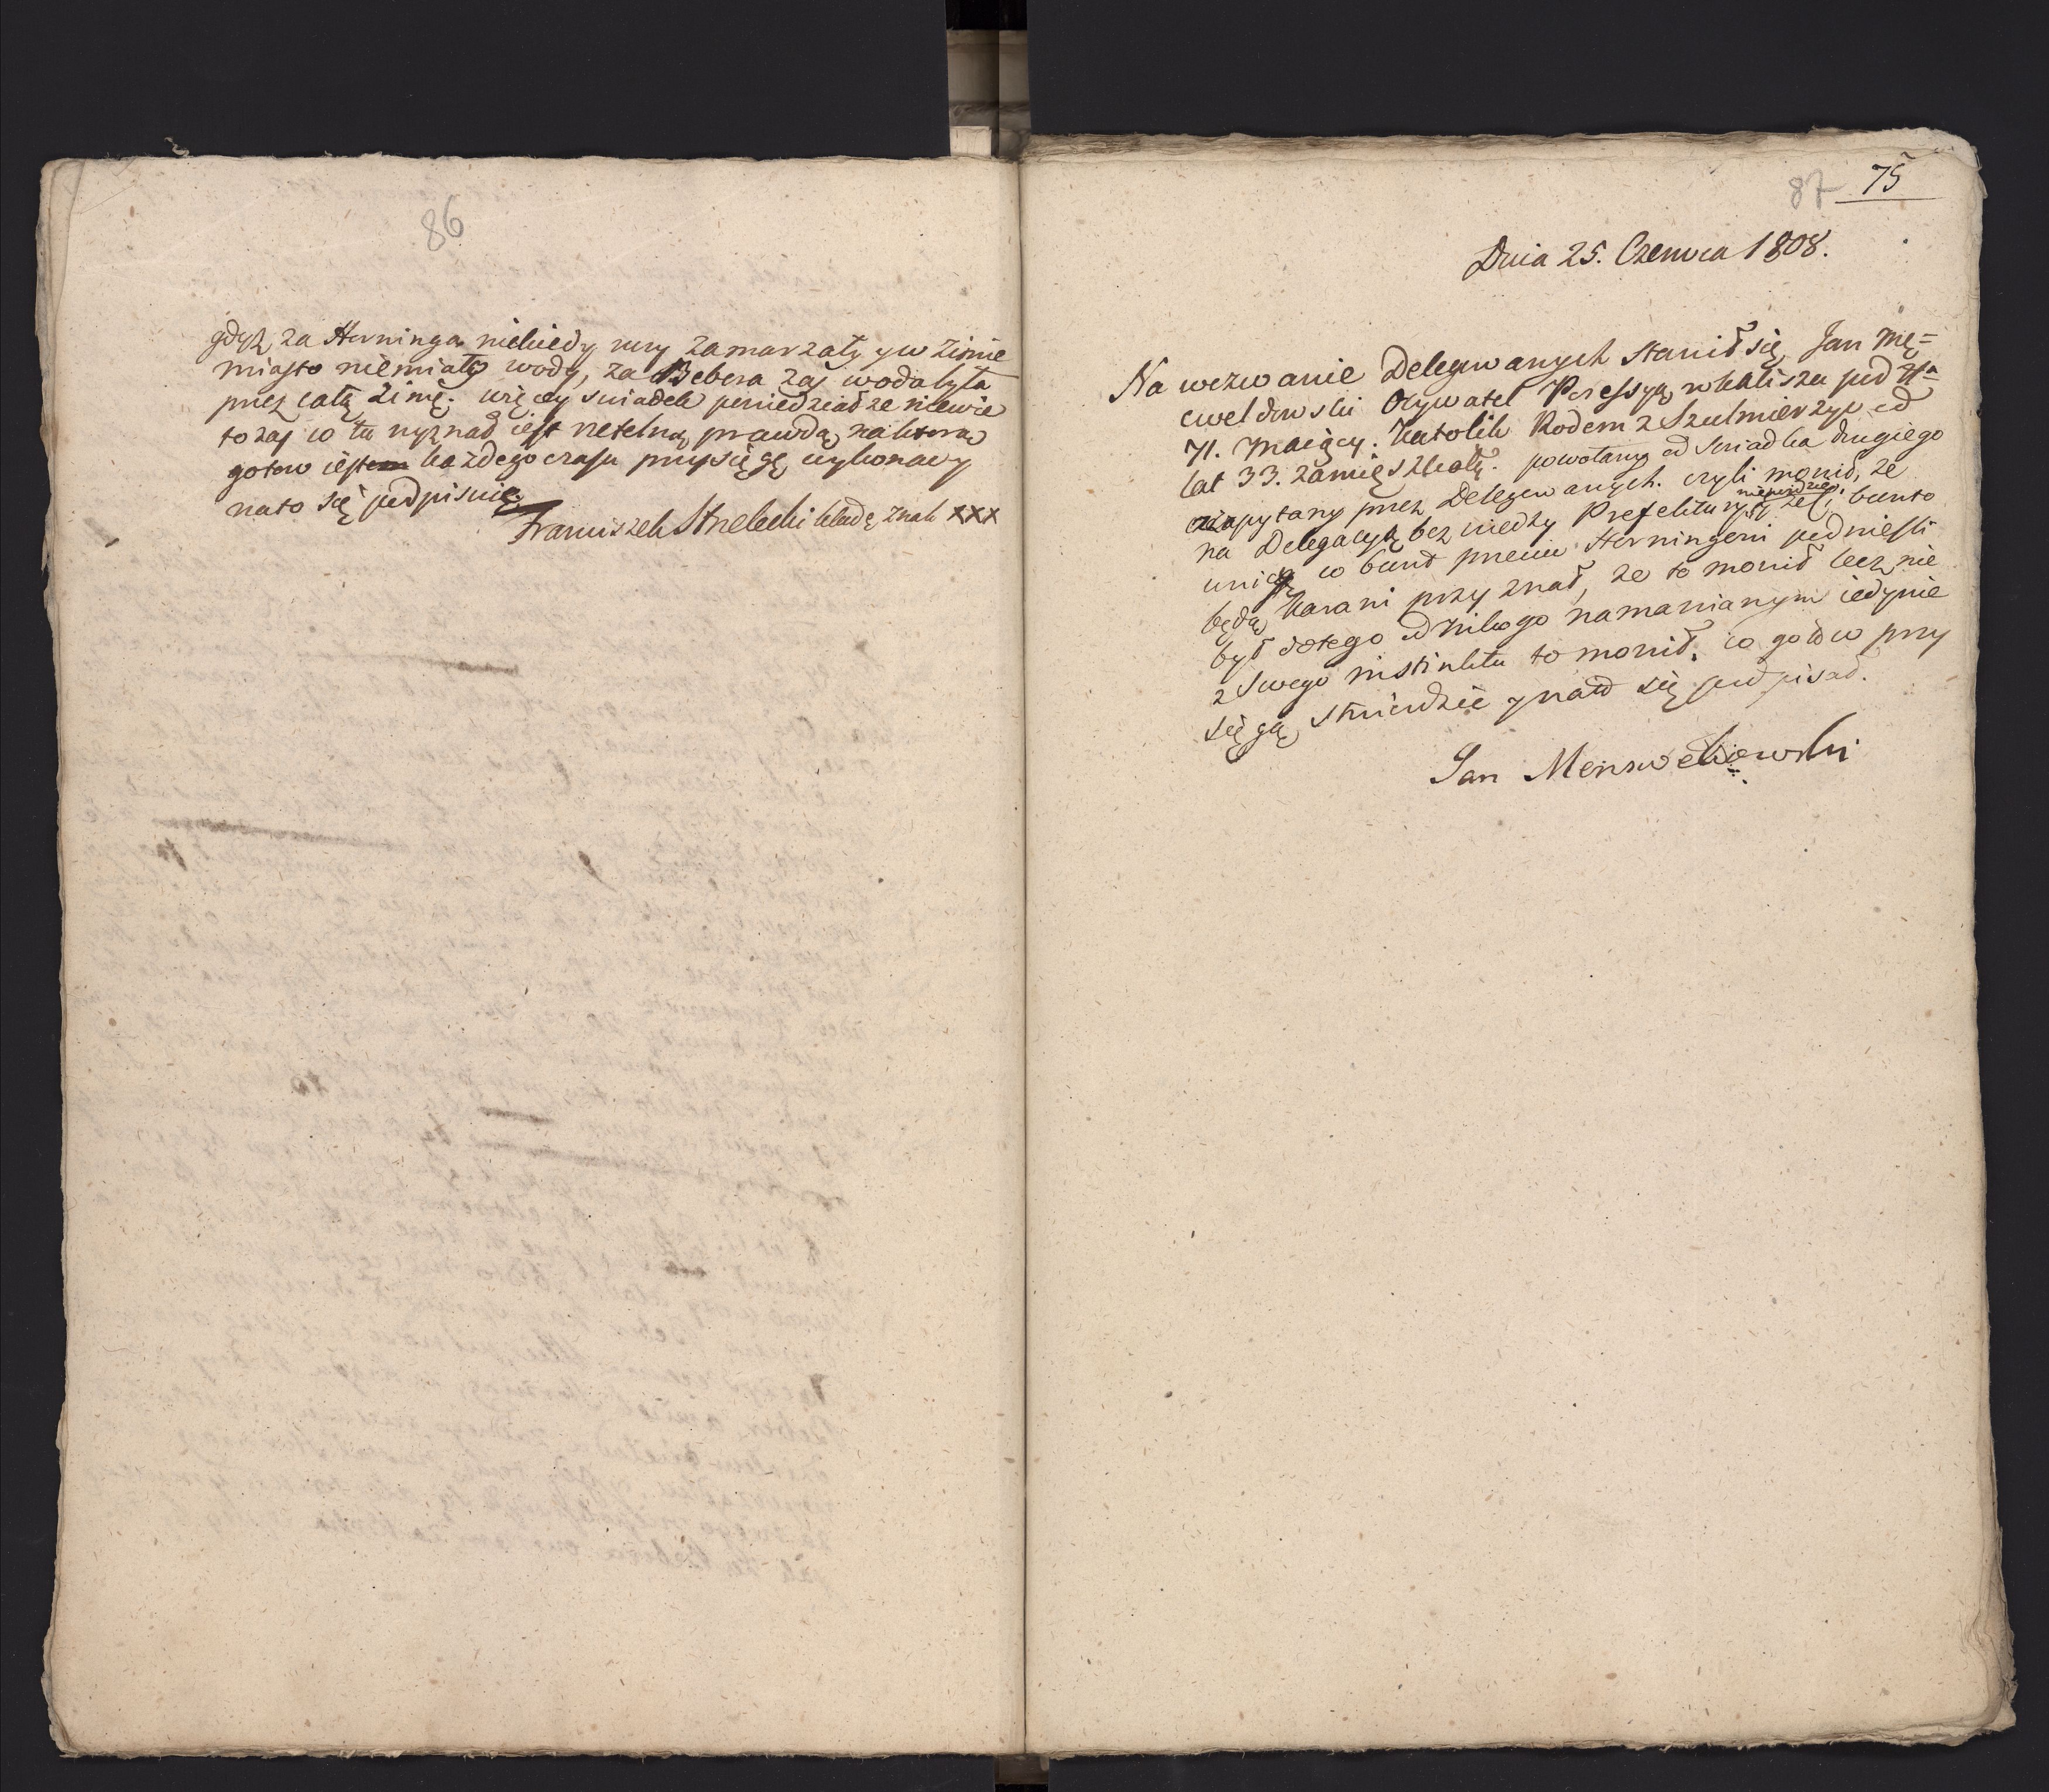 86
gdyż za Herninga niekiedy rury zamarzały y w zimie
miasto niemiało wody, za Bebera zaś woda była
przez całą zimę. więcey swiadek powiedział ze niewie
to zaś co tu wyznał iest retelną prawdą, na ktorą
gotow iestem każdego czasu przysięgę wykonac y
na to się podpisuię
Franciszek Strzelecki kładę znak xxx
87 75
Dnia 25. Czerwca 1808.
Na wezwanie Delegowanych stanił się Jan Mę=
cweldowski Obywatel Possessyą w Kaliszu pod
71. maiący. Katolik Rodem z Szulmierzyc od
lat 33. zamięszkały. powołany od swiadka drugiego
zapytany przez Delegowanych. czyli monił, ze
na Delegacyą bez wiedzy Prefektury niepoydzie, ze ci bunto
unicy co bunt przeciw Herningeni podniesli
będą karani przyznał, ze to monił lecz nie
był dotego od nikogo namanianym iedynie
z swego instinktu to monił. co gotow przy
sięgą stwierdzic y nato się podpisał.
Jan Menswelowski